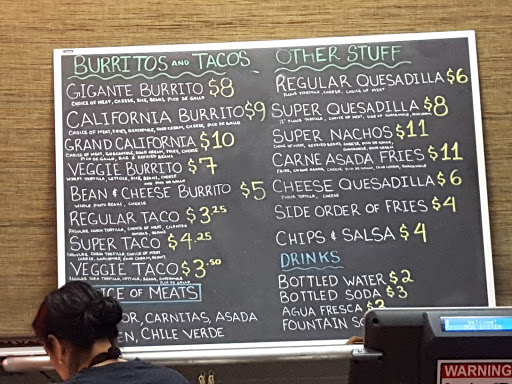 BURRITOS AND TACOS
GIGANTE BURRITO $8
CHOICE OF MEAT, CHEESE, RICE, BEANS, PICO DE GALLO
CALIFORNIA BURRITO $9
CHOICE OF MEAT, FRIES, GUACAMOLE, SOUR CREAM, CHEESE, PICO DE GALLO
GRAND CALIFORNIA $10
PICO DE GALLO, RICE & REFRIED BEANS
VEGGIE BURRITO $7
BEAN & CHEESE BURRITO $5
WHOLE PINTO BEANS, CHEESE
REGULAR TACO $3.25
SUPER TACO $4.25
VEGGIE TACO $3.50
ICE OF MEATS
OR, CARNITAS, ASADA
EN, CHILE VERDE
OTHER STUFF
REGULAR QUESADILLA $6
FLOUR TORTILLA, CHEESE, CHOICE OF MEAT
SUPER QUESADILLA $8
SUPER NACHOS $11
CARNE ASADA FRIES $11
CHEESE QUESADILLA $6
FLOUR TORTILLA, CHEESE
SIDE ORDER OF FRIES $4
CHIPS & SALSA $4
DRINKS
BOTTLED WATER $2
BOTTLED SODA $3
AGUA FRESCA
FOUNTAIN SO
Welcome!
WARNING